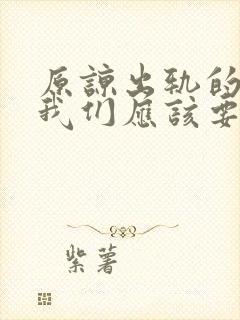 原谅出轨的
我们应该要
紫薯